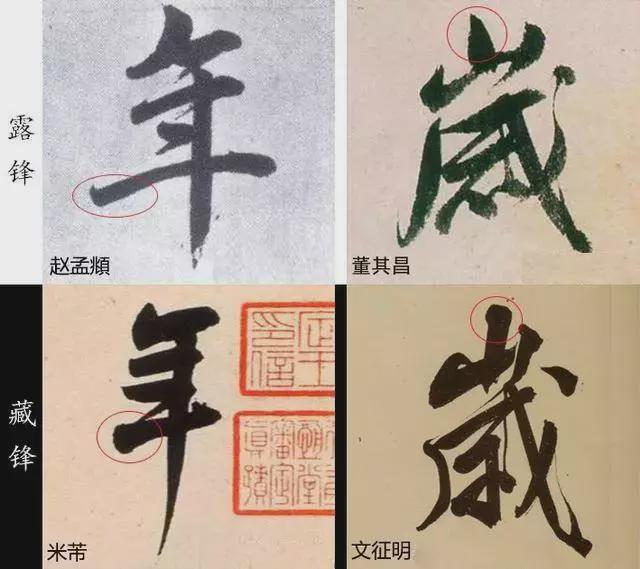 露锋
年
歲
赵孟頫
董其昌
藏锋
年
歲
米芾
文征明